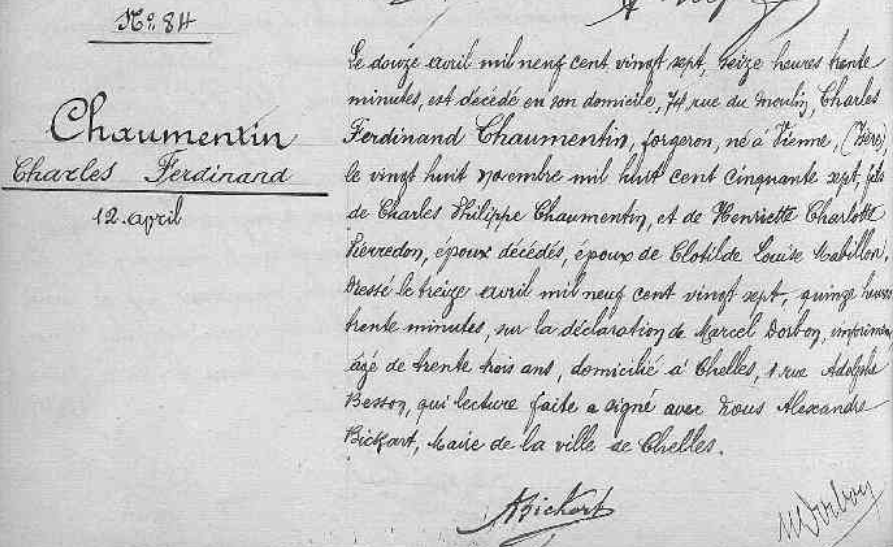 No. 84
Chaumentin
Charles Ferdinand
12. april
Le douze avril mil neuf cent vingt sept, seize heures trente
minutes, est décédé en son domicile, 74 rue du Moulin, Charles
Ferdinand Chaumentin, forgeron, né à Vienne, (Isère)
le vingt huit novembre mil huit cent cinquante sept, fils
de Charles Philippe Chaumentin, et de Henriette Charlotte
Pierredon, époux décédés, époux de Clotilde Louise Mabillon.
Dressé le treize avril mil neuf cent vingt sept, quinze heures
trente minutes, sur la déclaration de Marcel Dorbon, imprimeur
âgé de trente trois ans, domicilié à Chelles, 1 rue Adolphe
Besson, qui lecture faite a signé avec Nous Alexandre
Bickart, Maire de la ville de Chelles.
ABickart
MDorbon